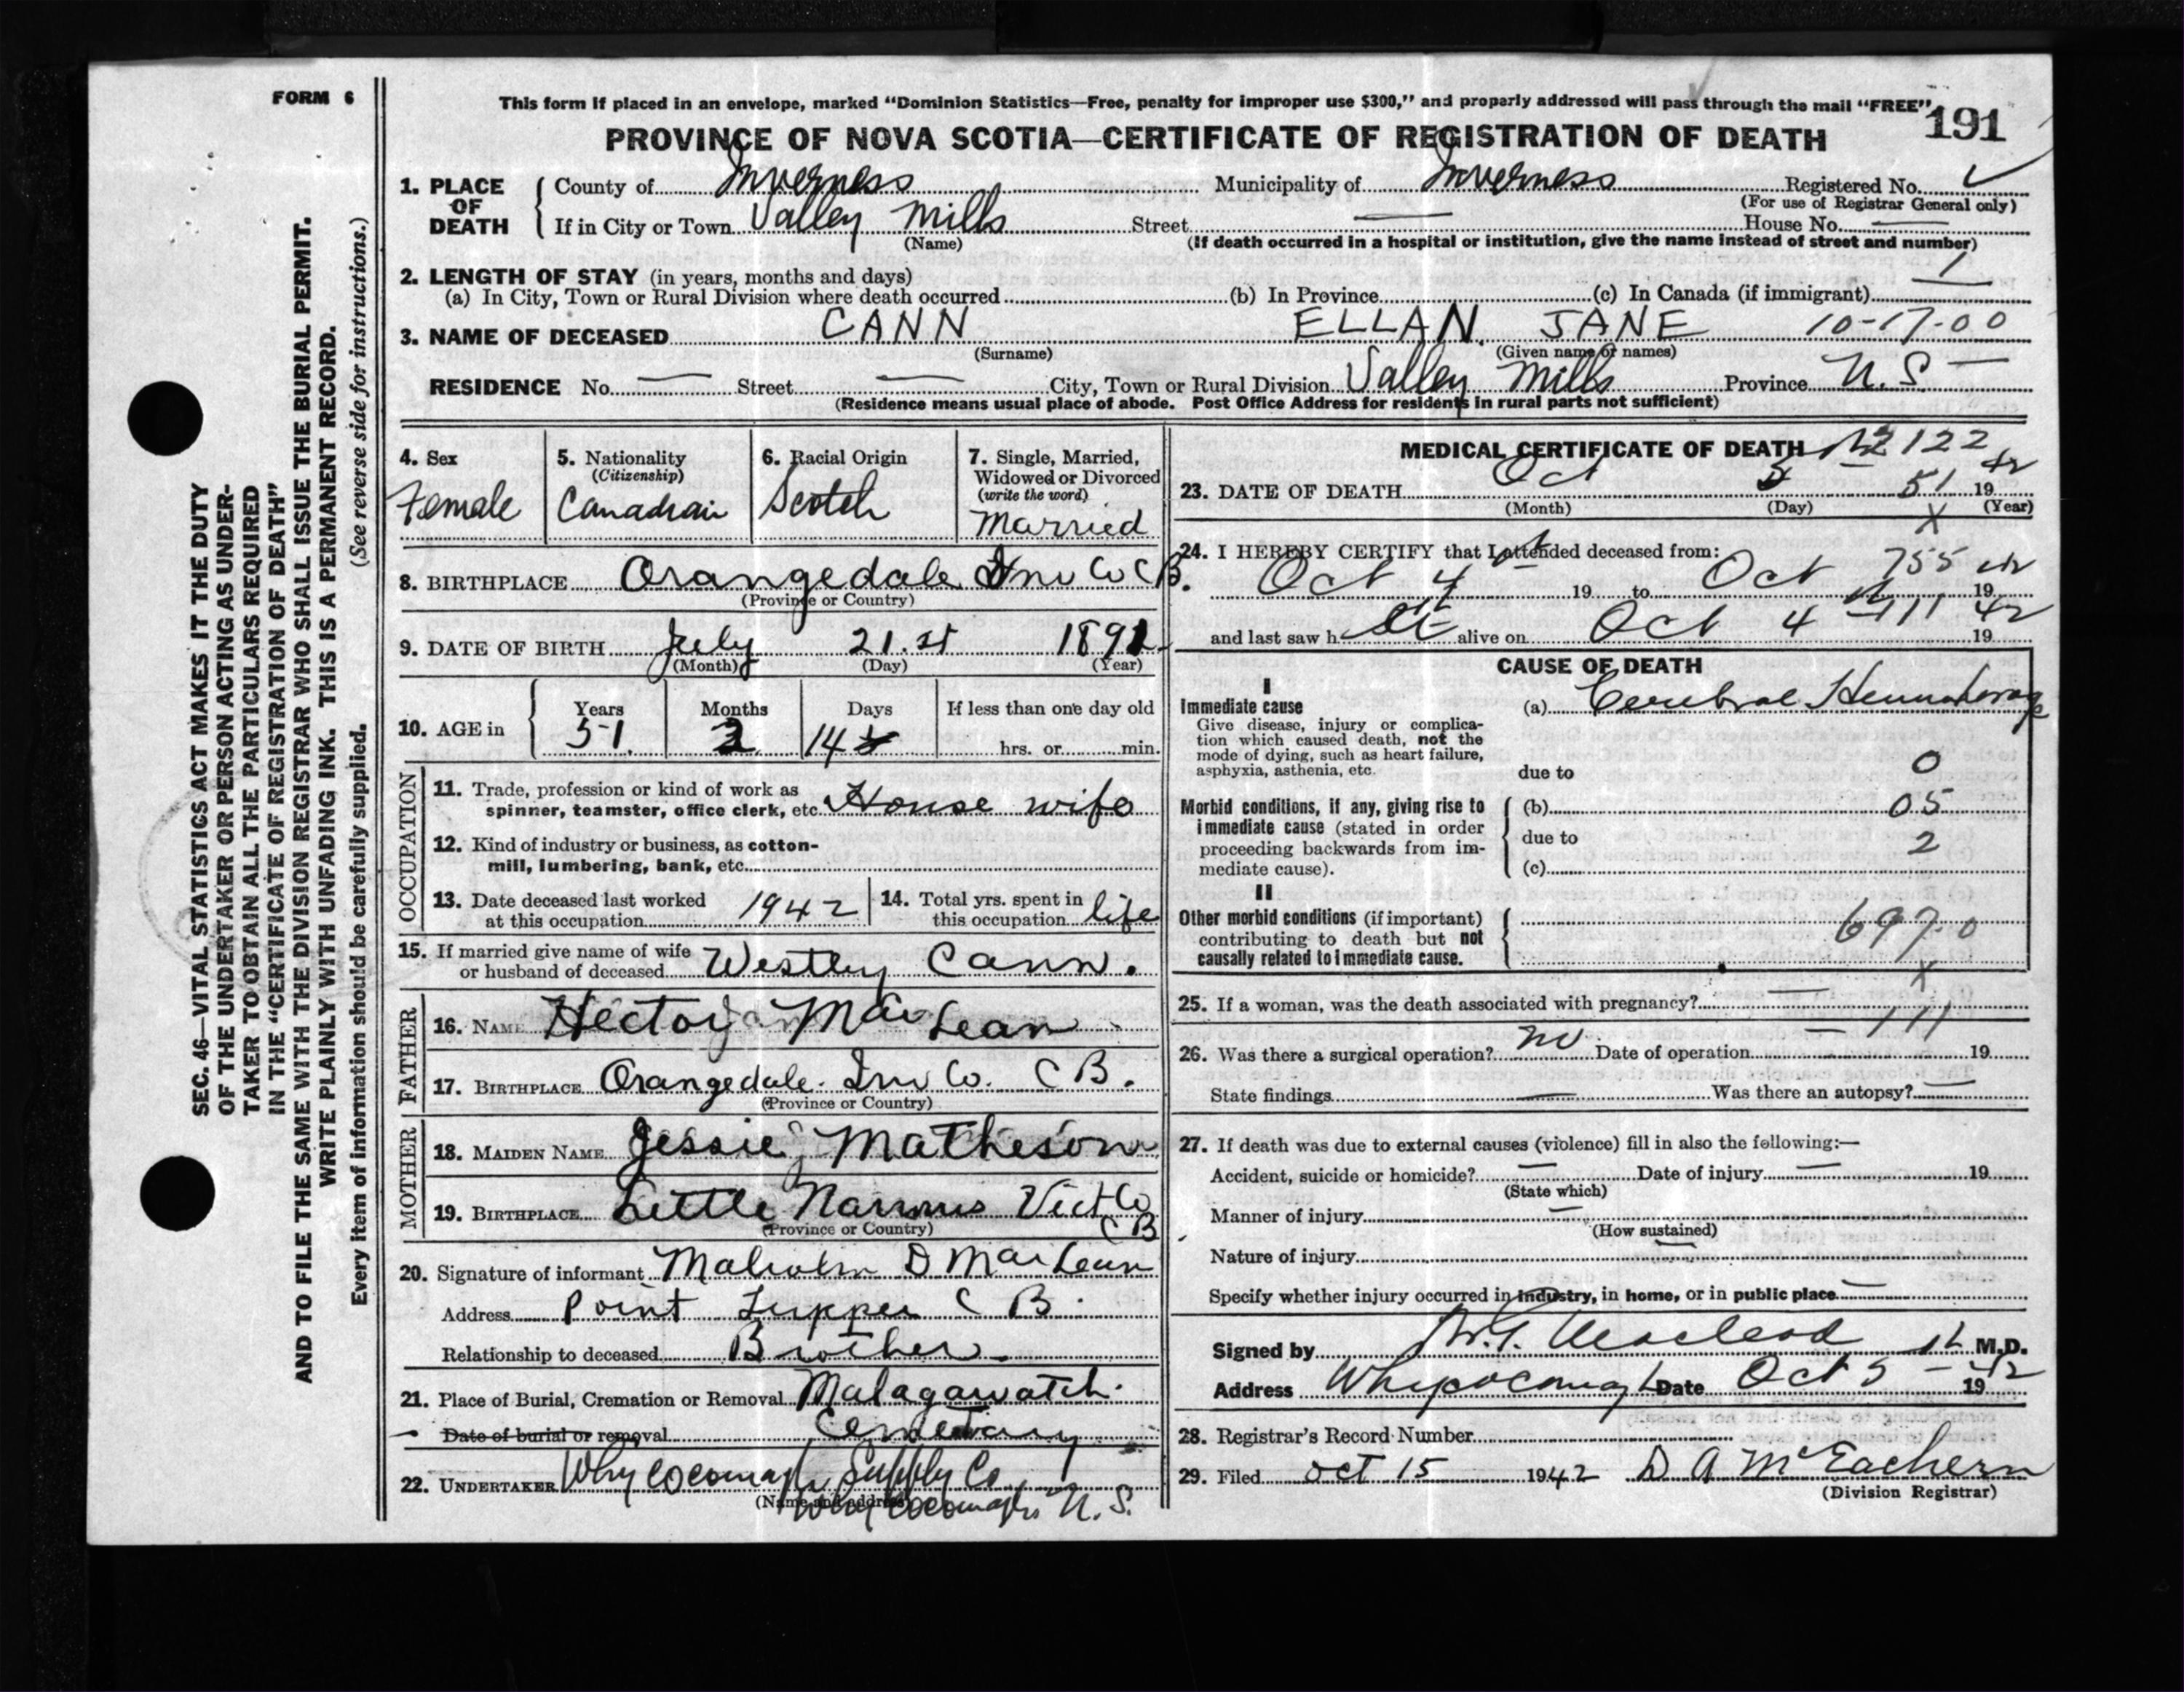 FORM 6
This form if placed in an envelope, marked "Dominion Statistics—Free, penalty for improper use $300," and properly addressed will pass through the mail "FREE"
191
PROVINCE OF NOVA SCOTIA—CERTIFICATE OF REGISTRATION OF DEATH
SEC. 46—VITAL STATISTICS ACT MAKES IT THE DUTY
OF THE UNDERTAKER OR PERSON ACTING AS UNDER-
TAKER TO OBTAIN ALL THE PARTICULARS REQUIRED
IN THE "CERTIFICATE OF REGISTRATION OF DEATH"
AND TO FILE THE SAME WITH THE DIVISION REGISTRAR WHO SHALL ISSUE THE BURIAL PERMIT.
WRITE PLAINLY WITH UNFADING INK. THIS IS A PERMANENT RECORD.
Every item of information should be carefully supplied. (See reverse side for instructions.)
1. PLACE OF DEATH County of Inverness Municipality of Inverness Registered No.
(For use of Registrar General only)
If in City or Town Valley Mills Street — House No. —
(Name) (If death occurred in a hospital or institution, give the name instead of street and number)
2. LENGTH OF STAY (in years, months and days)
(a) In City, Town or Rural Division where death occurred (b) In Province (c) In Canada (if immigrant) 1
3. NAME OF DECEASED CANN ELLAN JANE 10-17-00
(Surname) (Given name or names)
RESIDENCE No. — Street — City, Town or Rural Division Valley Mills Province N.S.
(Residence means usual place of abode. Post Office Address for residents in rural parts not sufficient)
4. Sex Female
5. Nationality (Citizenship) Canadian
6. Racial Origin Scotch
7. Single, Married, Widowed or Divorced (write the word) Married
8. BIRTHPLACE Orangedale Inv Co C B.
(Province or Country)
9. DATE OF BIRTH July 21.st 1891
(Month) (Day) (Year)
10. AGE in Years 51 Months 2 Days 14 If less than one day old hrs. or min.
OCCUPATION
11. Trade, profession or kind of work as
spinner, teamster, office clerk, etc. House wife
12. Kind of industry or business, as cotton-
mill, lumbering, bank, etc.
13. Date deceased last worked at this occupation 1942
14. Total yrs. spent in this occupation life
15. If married give name of wife
or husband of deceased Westley Cann.
FATHER
16. NAME Hector MacLean
17. BIRTHPLACE Orangedale Inv Co. C B.
(Province or Country)
MOTHER
18. MAIDEN NAME Jessie Matheson
19. BIRTHPLACE Little Narrows Vict Co
(Province or Country) C B
20. Signature of informant Malcolm D MacLean
Address Point Tupper C B.
Relationship to deceased Brother
21. Place of Burial, Cremation or Removal Malagawatch
Date of burial or removal Cemetary
22. UNDERTAKER Whycocomagh Supply Co
(Name and address) Whycocomagh N.S.
MEDICAL CERTIFICATE OF DEATH 122
23. DATE OF DEATH Oct 5 51 19 42
(Month) (Day) (Year)
24. I HEREBY CERTIFY that I attended deceased from:
Oct 4 19 to Oct 755 19 42
and last saw h alive on Oct 4 111 19 42
CAUSE OF DEATH
I
Immediate cause
Give disease, injury or complica-
tion which caused death, not the
mode of dying, such as heart failure,
asphyxia, asthenia, etc.
(a) Cerebral Hemmohrage
due to 0
Morbid conditions, if any, giving rise to
immediate cause (stated in order
proceeding backwards from im-
mediate cause).
(b) 05
due to 2
(c)
II
Other morbid conditions (if important)
contributing to death but not
causally related to immediate cause.
697.0
X
25. If a woman, was the death associated with pregnancy? —
111
26. Was there a surgical operation? no Date of operation — 19
State findings — Was there an autopsy? —
27. If death was due to external causes (violence) fill in also the following:—
Accident, suicide or homicide? — Date of injury — 19
(State which)
Manner of injury —
(How sustained)
Nature of injury —
Specify whether injury occurred in industry, in home, or in public place —
Signed by Macleod M.D.
Address Whycocomagh Date Oct 5 19 42
28. Registrar's Record Number
29. Filed Oct 15 1942 D A McEachern
(Division Registrar)